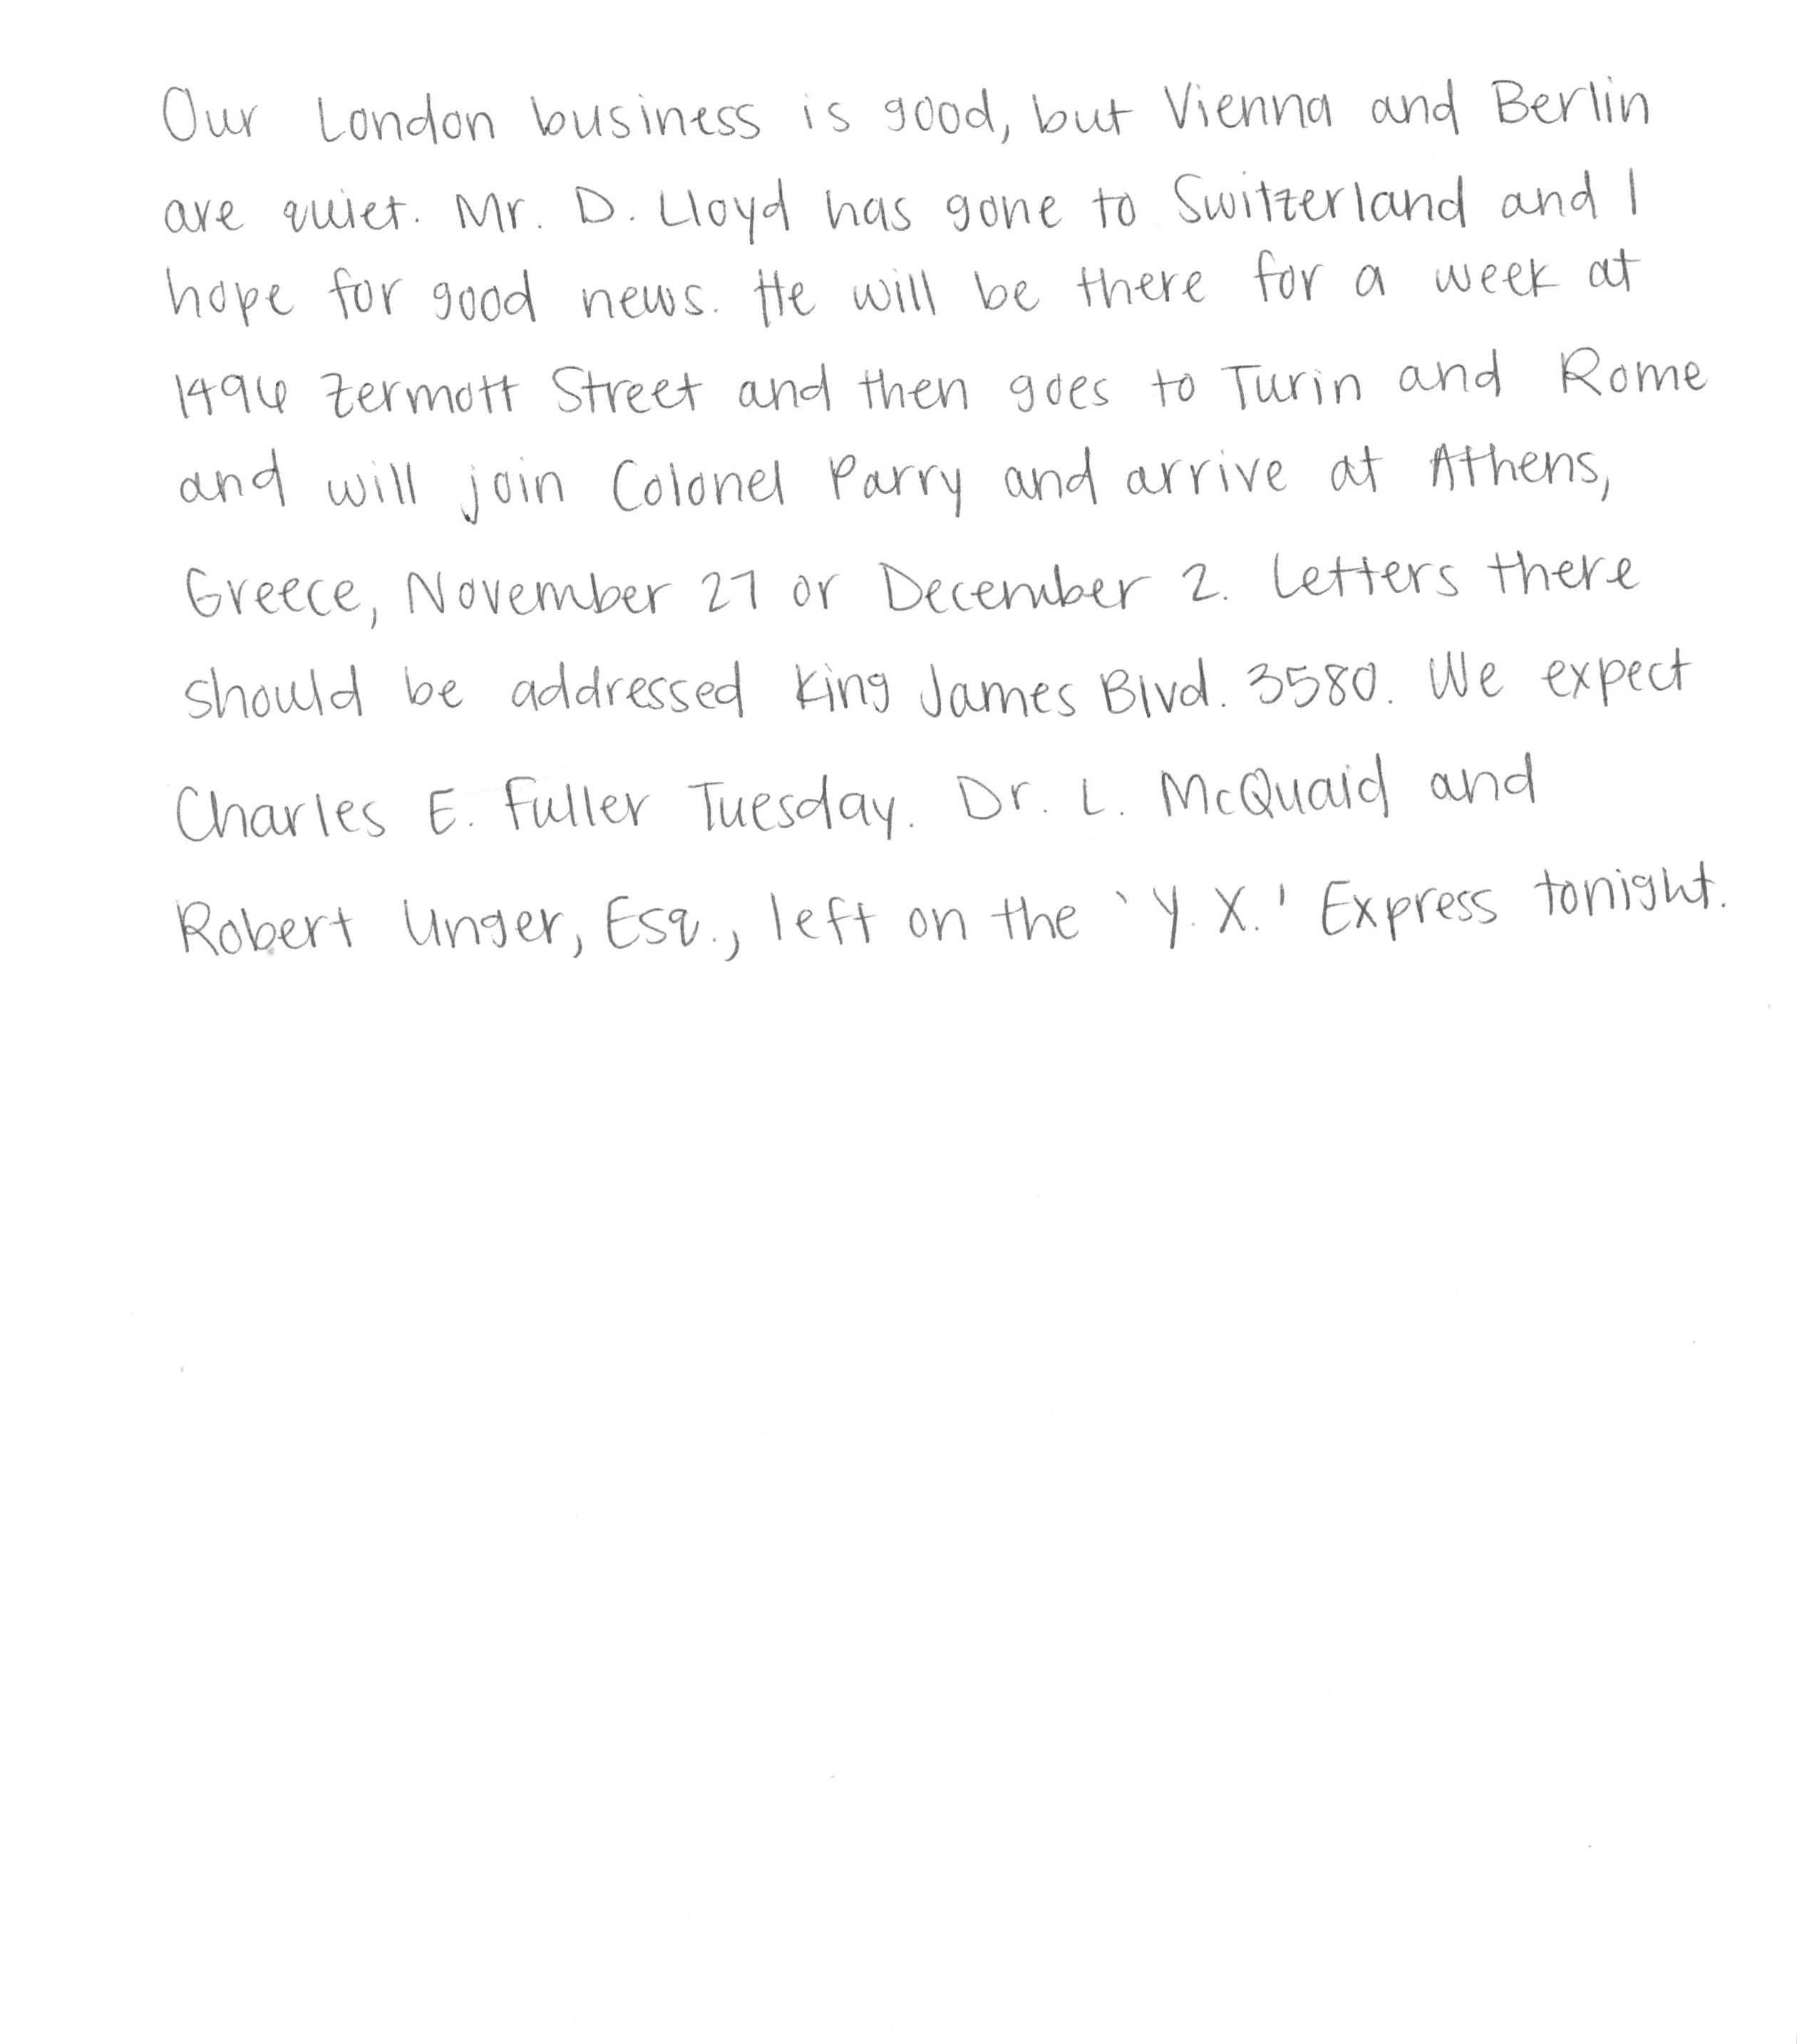 Our London business is good, but Vienna and Berlin
are quiet. Mr. D. Lloyd has gone to Switzerland and I
hope for good news. He will be there for a week at
1496 Zermott Street and then goes to Turin and Rome
and will join Colonel Parry and arrive at Athens,
Greece, November 27 or December 2. Letters there
should be addressed King James Blvd. 3580. We expect
Charles E. Fuller Tuesday. Dr. L. McQuaid and
Robert Unger, Esq., left on the 'Y. X.' Express tonight.